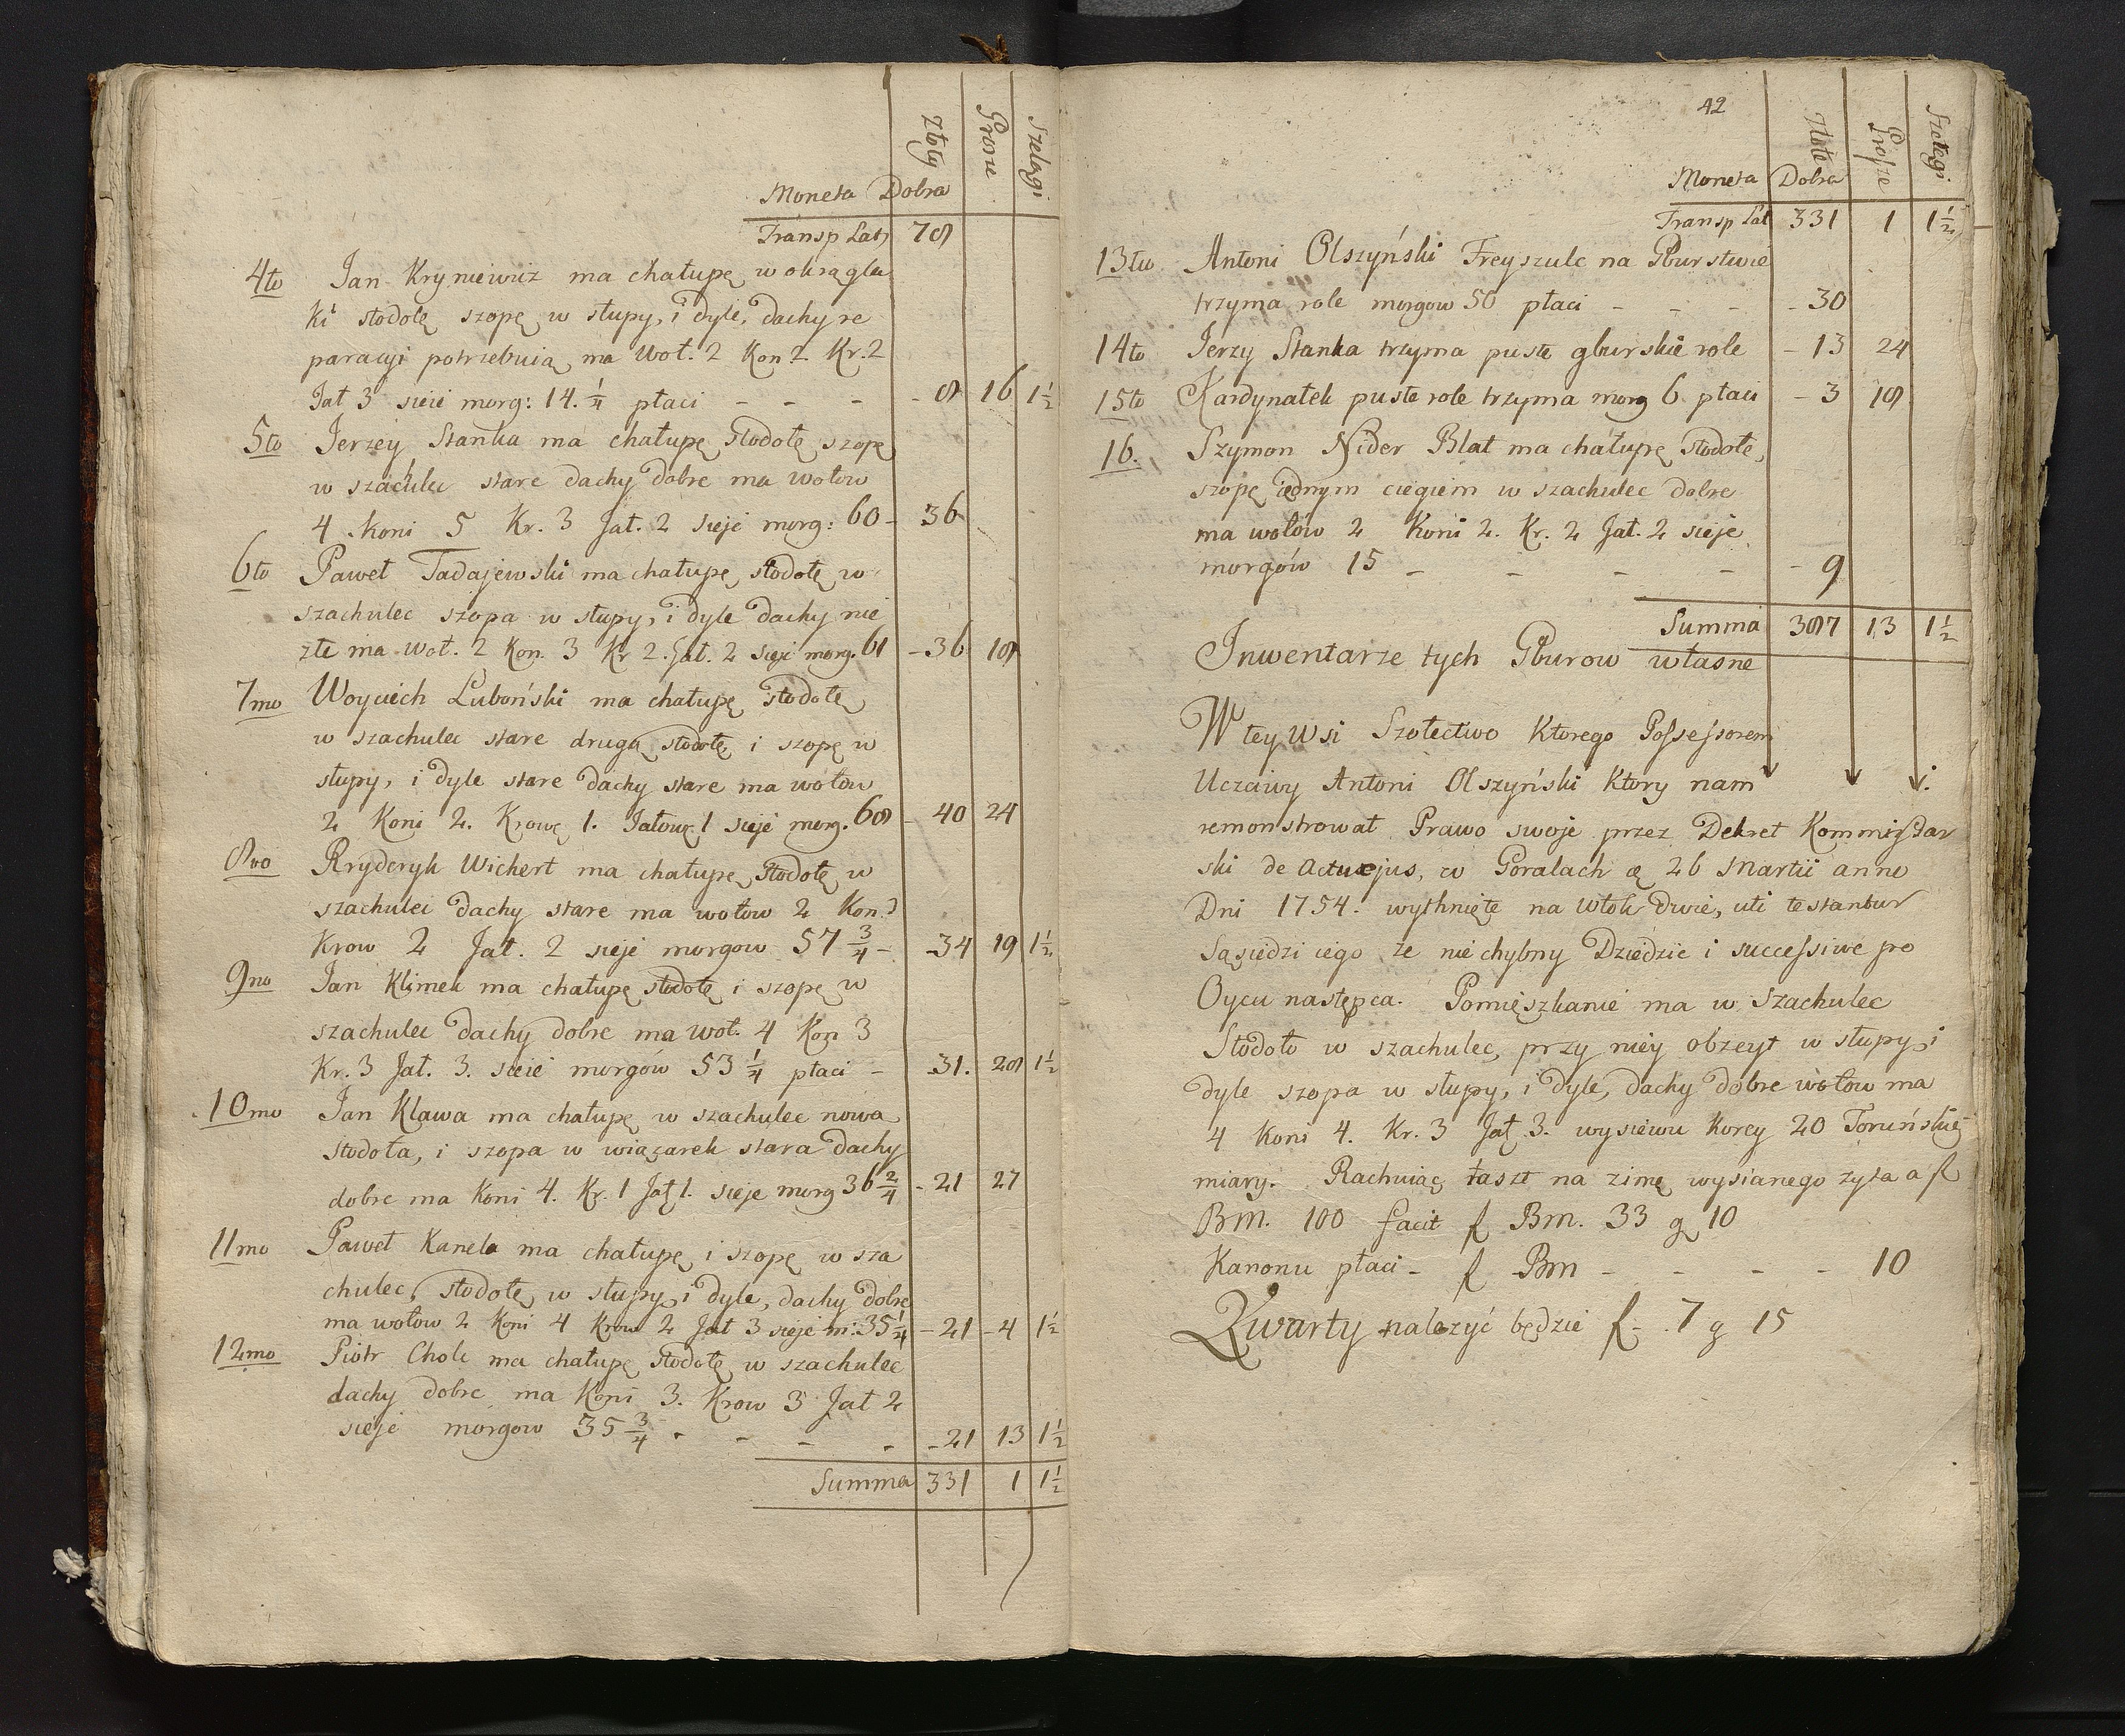 Złoty Grosze Szelągi
Moneta Dobra
Transp Lat 78
4to Jan Kryniewicz ma chałupę w okrągla
ki stodołę szopę w słupy, i dyle, dachy re
paracyi potrzebuią ma Woł. 2 Kon 2 Kr. 2
Jał 3 sieie morg: 14. 1/4 płaci - - - - 8 16 1 1/2
5to Jerzey Stanka ma chałupę stodołę szopę
w szachulec stare dachy dobre ma wołow
4 Koni 5 Kr. 3 Jał. 2 sieje morg: 60 - 36
6to Paweł Tadajewski ma chałupę, stodołę w
szachulec szopa w słupy, i dyle dachy nie
złe ma Woł. 2 Kon. 3 Kr 2. Jał. 2 sieje morg. 61 - 36 18
7mo Woyciech Luboński ma chałupę stodołę
w szachulec stare drugą stodołę i szopę w
słupy, i dyle stare dachy stare ma wołow
2 Koni 2. Krowę 1. Jałowę 1 sieje morg. 68 - 40 24
8vo Rryderyk Wichert ma chałupę, stodołę w
szachulec dachy stare ma wołow 2 Kon. 3
Krow 2 Jał. 2 sieje morgow 57 3/4 - 34 19 1 1/2
9no Jan Klimek ma chałupę stodołę i szopę w
szachulec dachy dobre ma woł. 4 Kon 3
Kr. 3 Jał. 3. sieie morgów 53 1/4 płaci - 31. 28 1 1/2
10mo Jan Klawa ma chałupę w szachulec nowa
stodoła, i szopa w wiązarek stara dachy
dobre ma Koni 4. Kr. 1 Jał 1. sieje morg 36 2/4 - 21 27
11mo Paweł Kanela ma chałupę i szopę w sza
chulec, stodołę w słupy, i dyle, dachy dobre
ma wołow 2 Koni 4 Krow 2 Jał 3 sieje m: 35 1/4 - 21 - 4 1 1/2
12mo Piotr Chole ma chałupę stodołę w szachulec
dachy dobre ma Koni 3. Krow 3 Jał 2
sieje morgow 35 3/4 - - - - - 21 13 1 1/2
Summa 331 1 1 1/2
42
Złote Grosze Szelągi
Moneta Dobra
Transp Lat 331 1 1 1/2
13tio Antoni Olszyński Freyszulc na Gburstwie
trzyma role morgow 50 płaci - - - - 30
14to Jerzy Stanka trzyma puste gburskie role - 13 24
15to Kardynałek puste role trzyma morg 6. płaci - 3 18
16. Szymon Nider Blat ma chałupę, stodołę,
szopę iednym ciegiem w szachulec dobre
ma wołów 2 Koni 2. Kr. 2 Jał. 2 sieje
morgów 15 - - - - - 9
Summa 387 13 1 1/2
Inwentarze tych Gburow własne
W tey Wsi Szołectwo Ktorego Possessorem
Uczciwy Antoni Olszyński Ktory nam
remonstrował Prawo swoje przez Dekret Kommissar
ski de Actu ejus, w Goralach 26 Martii anno
Dni 1754. wythnięte na Włok dwie, uti testantur
Sąsiedzi iego że nie chybny Dziedzic i successive po
Oycu następca. Pomięszkanie ma w Szachulec
Stodoło w szachulec, przy niey obzeyt w słupy i
dyle szopa w słupy, i dyle, dachy dobre wołow ma
4 Koni 4. Kr. 3 Jał 3. wysiewu Korcy 20 Toruńskiej
miary. Rachuiąc łaszt na zimę wysianego zyta a fl
Bm. 100 facit fl Bm. 33 g 10
Kanonu płaci - fl Bm - - - - 10
Kwarty nalezyć będzie fl - 7 g 15